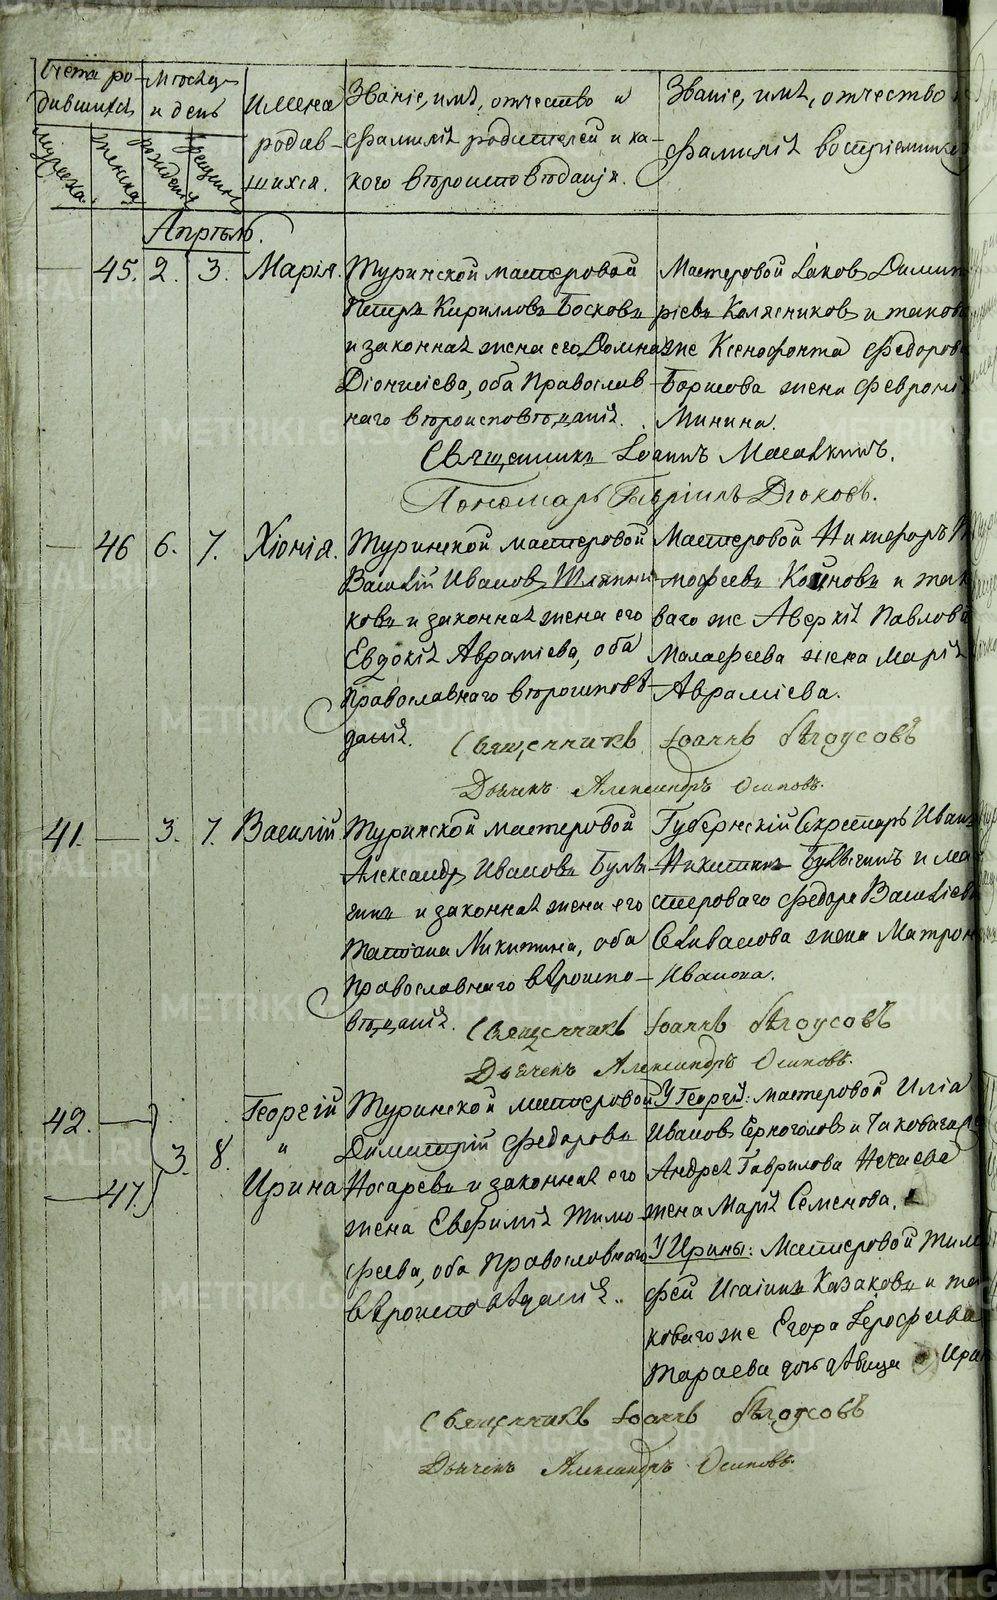 Счета ро-
дившихся
Мѣсяцъ
и день
Имена
родив-
шихся.
Званіе, имя, отчество и
фамилія родителей и ка-
кого вѣроисповѣданія.
Званіе, имя, отчество
фамилія воспріемников
мужеска.
женска.
рожденія
крещенія
Апрѣль.
45. 2. 3. Марія.
Туринской мастеровой
Петръ Кирилловъ Босковъ
и законная жена его Домна
Діонисіева, оба Православ
наго вѣроисповѣданія.
Мастеровой Іаковъ Димит
ріевъ Колясниковъ и таково
же Ксенофонта Федорова
Борисова жена Февронія
Минина.
Священникъ Іоаннъ
Пономарь Гавріилъ
46 6. 7. Хіонія.
Туринской мастеровой
Василій Ивановъ Шляпни
ковъ и законная жена его
Евдокія Авраміева, оба
Православнаго вѣроисповѣ
данія.
Мастеровой Никифоръ
мофеевъ и так
ваго же Аверкія Павлова
Малафеева жена Марія
Авраміева.
Священникъ Іоаннъ Бѣлоусовъ
Дьячекъ Александръ Осиповъ.
41. 3. 7. Василій
Туринской мастеровой
Александръ Ивановъ Булы
гинъ и законная жена его
Татіана Никитина, оба
Православнаго вѣроиспо
вѣданія.
Губернскій Секретарь Иванъ
Никитинъ и ма
стероваго Федора Василіева
Селиванова жена Матрона
Иванова.
Священникъ Іоаннъ Бѣлоусовъ
Дьячекъ Александръ Осиповъ.
42. Георгій
3. 8. "
47. Ирина
Туринской мастеровой
Димитрій Федоровъ
Носаревъ и законная его
жена Евфимія Тимо
феева, оба Православнаго
вѣроисповѣданія.
У Георгія: мастеровой Илія
Ивановъ Черноголовъ и таковаго же
Андрея Гаврилова Нечаева
жена Марія Семенова.
У Ирины: Мастеровой Тимо
фей Исаинъ Казаковъ и та
коваго же Егора Іерофеева
Тараева дочь дѣвица Ирин
Священникъ Іоаннъ Бѣлоусовъ
Дьячекъ Александръ Осиповъ.
METRIKI.GASO-URAL.RU